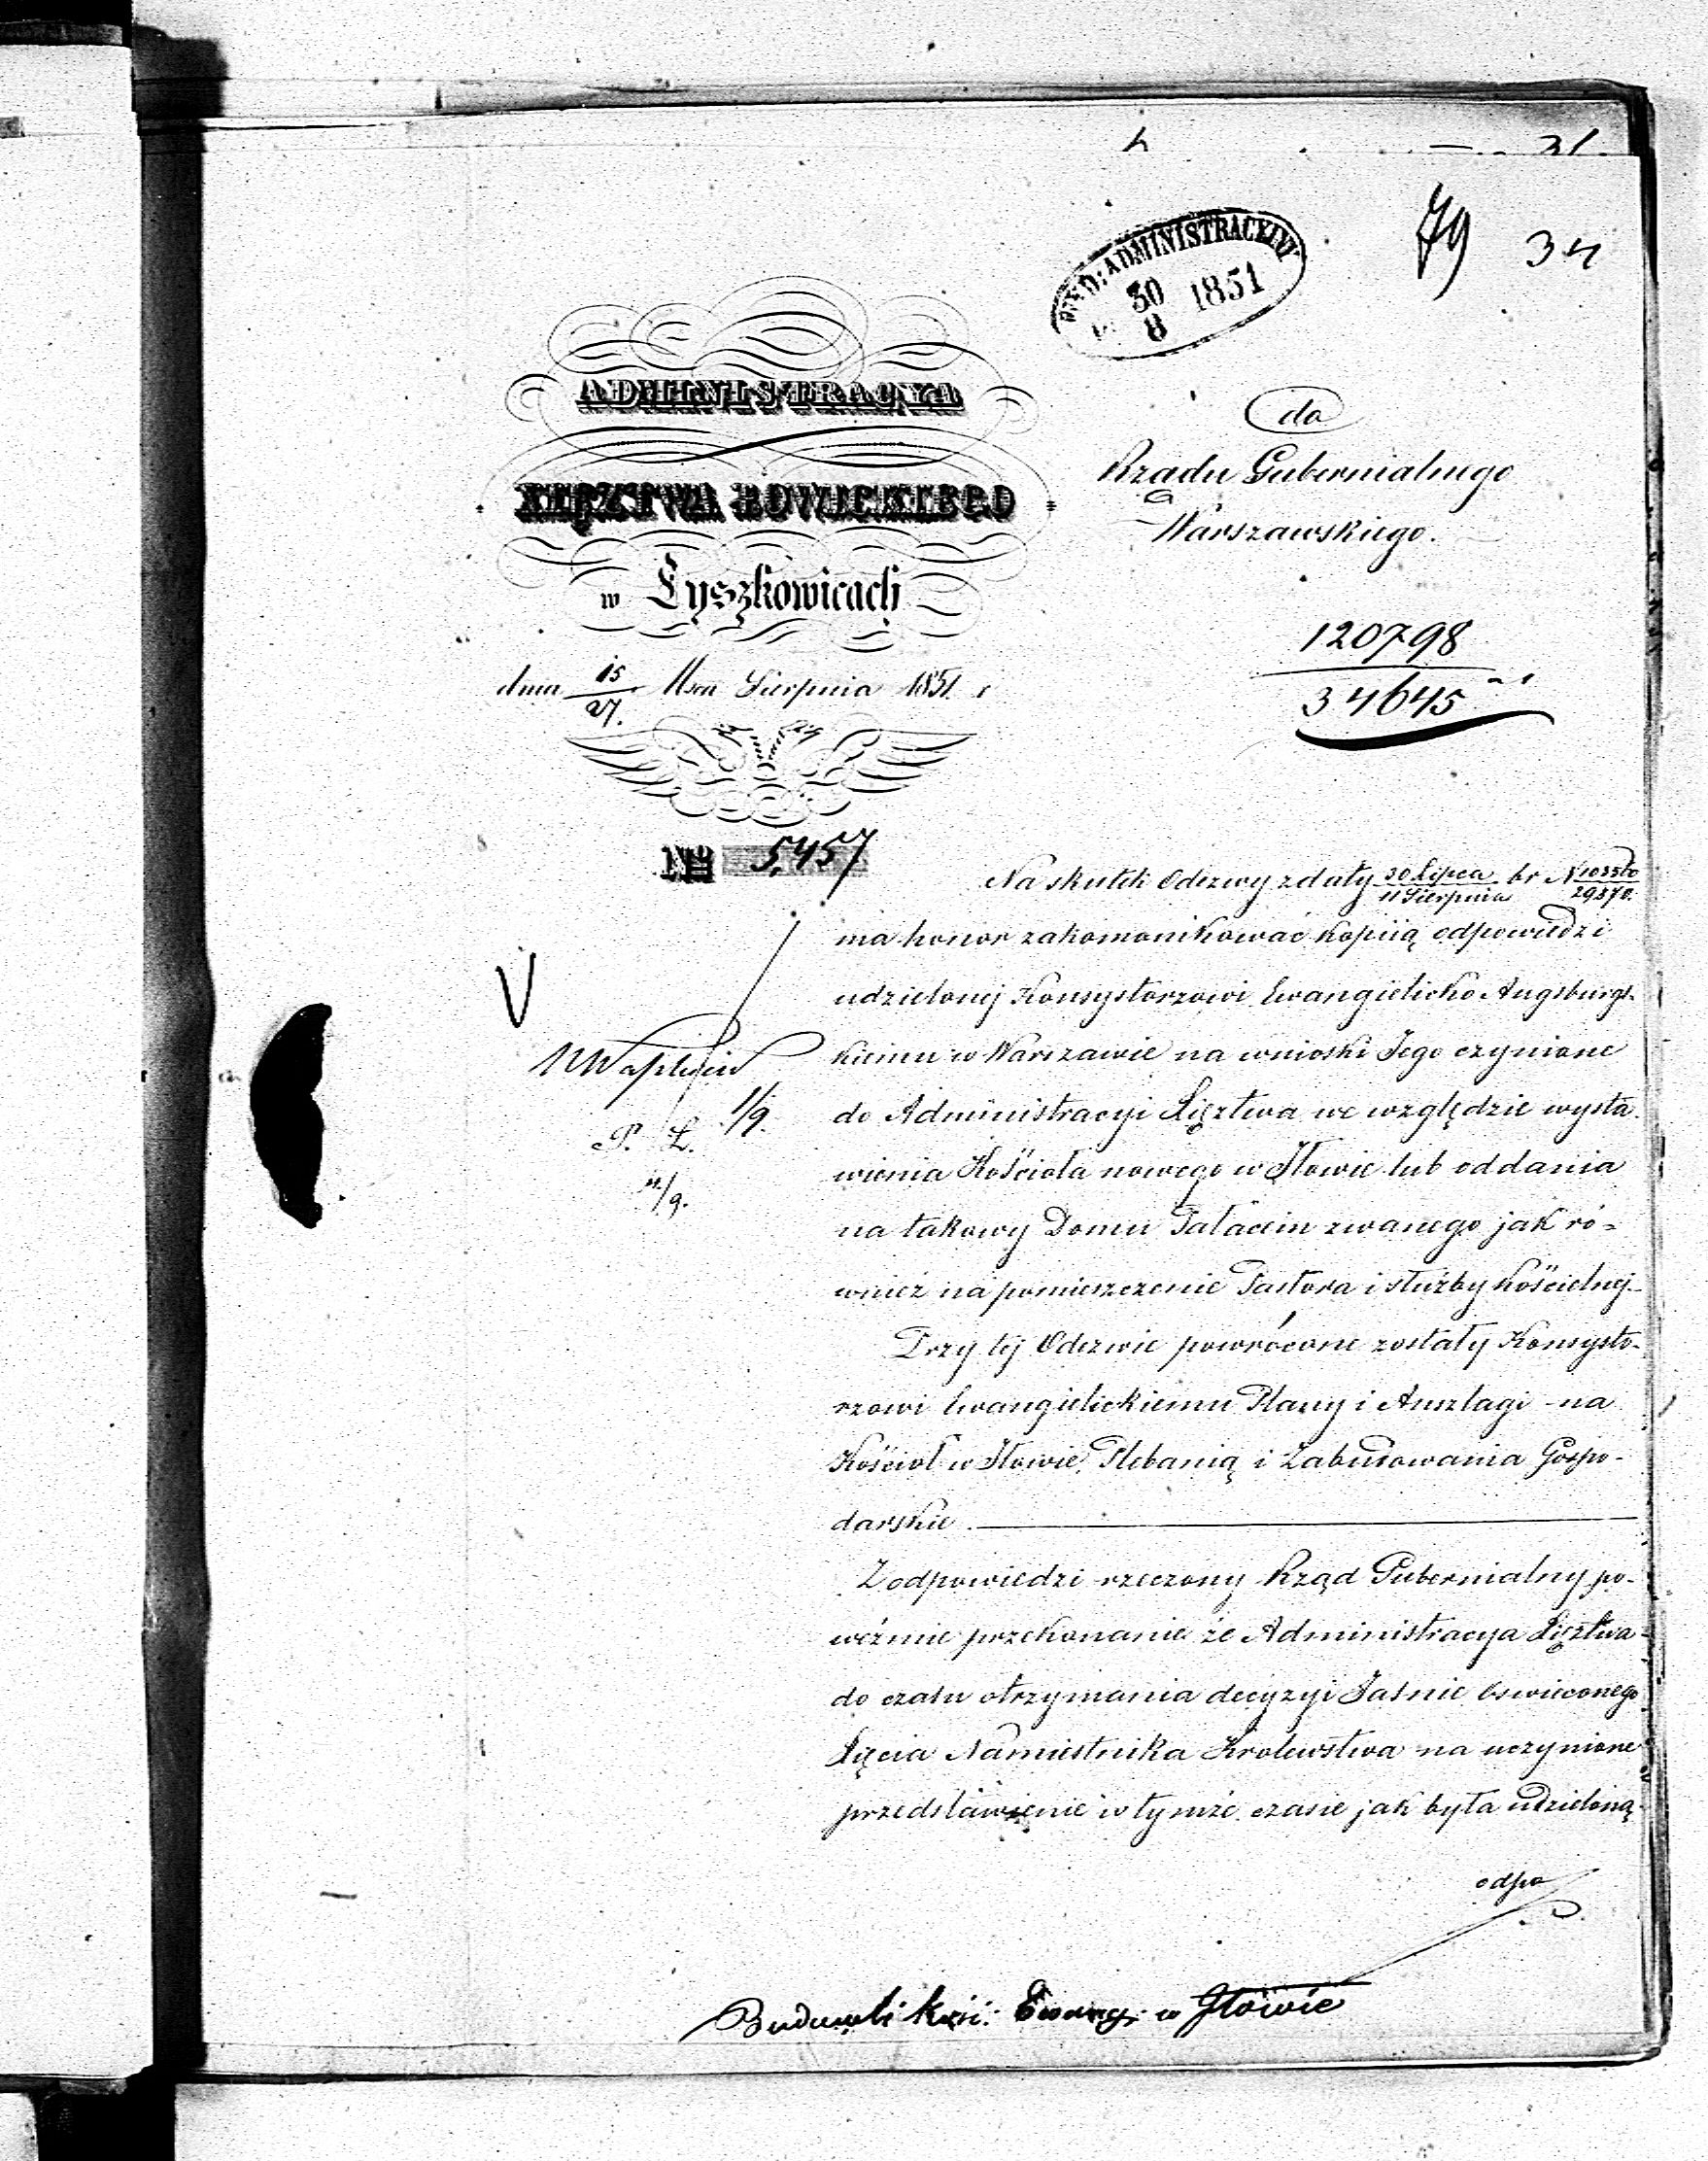 31
79 34
WYD: ADMINISTRACYJNY
30/8 1851
ADMINISTRACYA
XIĘZTWA ŁOWICKIEGO
w Łyszkowicach
dnia 15/27. Msca Sierpnia 1851 r
№ 5,457
do
Rządu Gubernialnego
Warszawskiego.
120798
34645
Na skutek Odezwy z daty 30 Lipca/11 Sierpnia br N
29870.
ma honor zakomonikować kopiią odpowiedzi
udzielonej Konsystorzowi Ewangielicko Augsburgs-
kiemu w Warszawie na wnioski Jego czynione
do Administracyi Xięztwa we względzie wysta-
wienia Kościoła nowego w Iłowie lub oddania
na takowy Domu Pałacem zwanego jak ró-
wnież na pomieszczenie Pastora i służby kościelnej.
Przy tej Odezwie powrócone zostały Konsysto-
rzowi Ewangielickiemu Plany i Anszlagi na
Kościoł w Iłowie, Plebanią i Zabudowania Gospo-
darskie.
Z odpowiedzi rzeczonej Rząd Gubernialny po-
weźmie przekonanie że Administracya Xięztwa
do czasu otrzymania decyzyi Jaśnie Oswieconego
Xięcia Namiestnika Krolewstwa na uczynione
przedstawienie w tymże czasie jak była udzieloną
odpo
P. L.
1/9
11/9.
Budowli kość: Ewang: w Iłowie